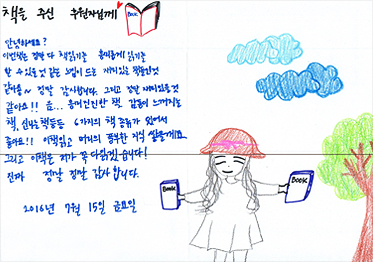 책을 주신 후원자님께
BOOK
안녕하세요?
이번책은 정말 다 책읽기를 흥미롭게 읽기를
할 수 있을것 같은 느낌이 드는 재미있을 책들인것
같아용~ 정말 감사합니다. 그리고 정말 재미있을것
같아요!! 음... 흥미진진한 책, 감동이 느껴지는
책, 신나는 책등등 6가지의 책 종류가 있어서
좋아요!! 이책읽고 머리의 풍부한 지식 쌓을게요
그리고 이책은 제가 꼭 다읽겠습니다!
진짜 정말 정말 감사합니다.
2016년 7월 15일 금요일
BOOK
BOOK